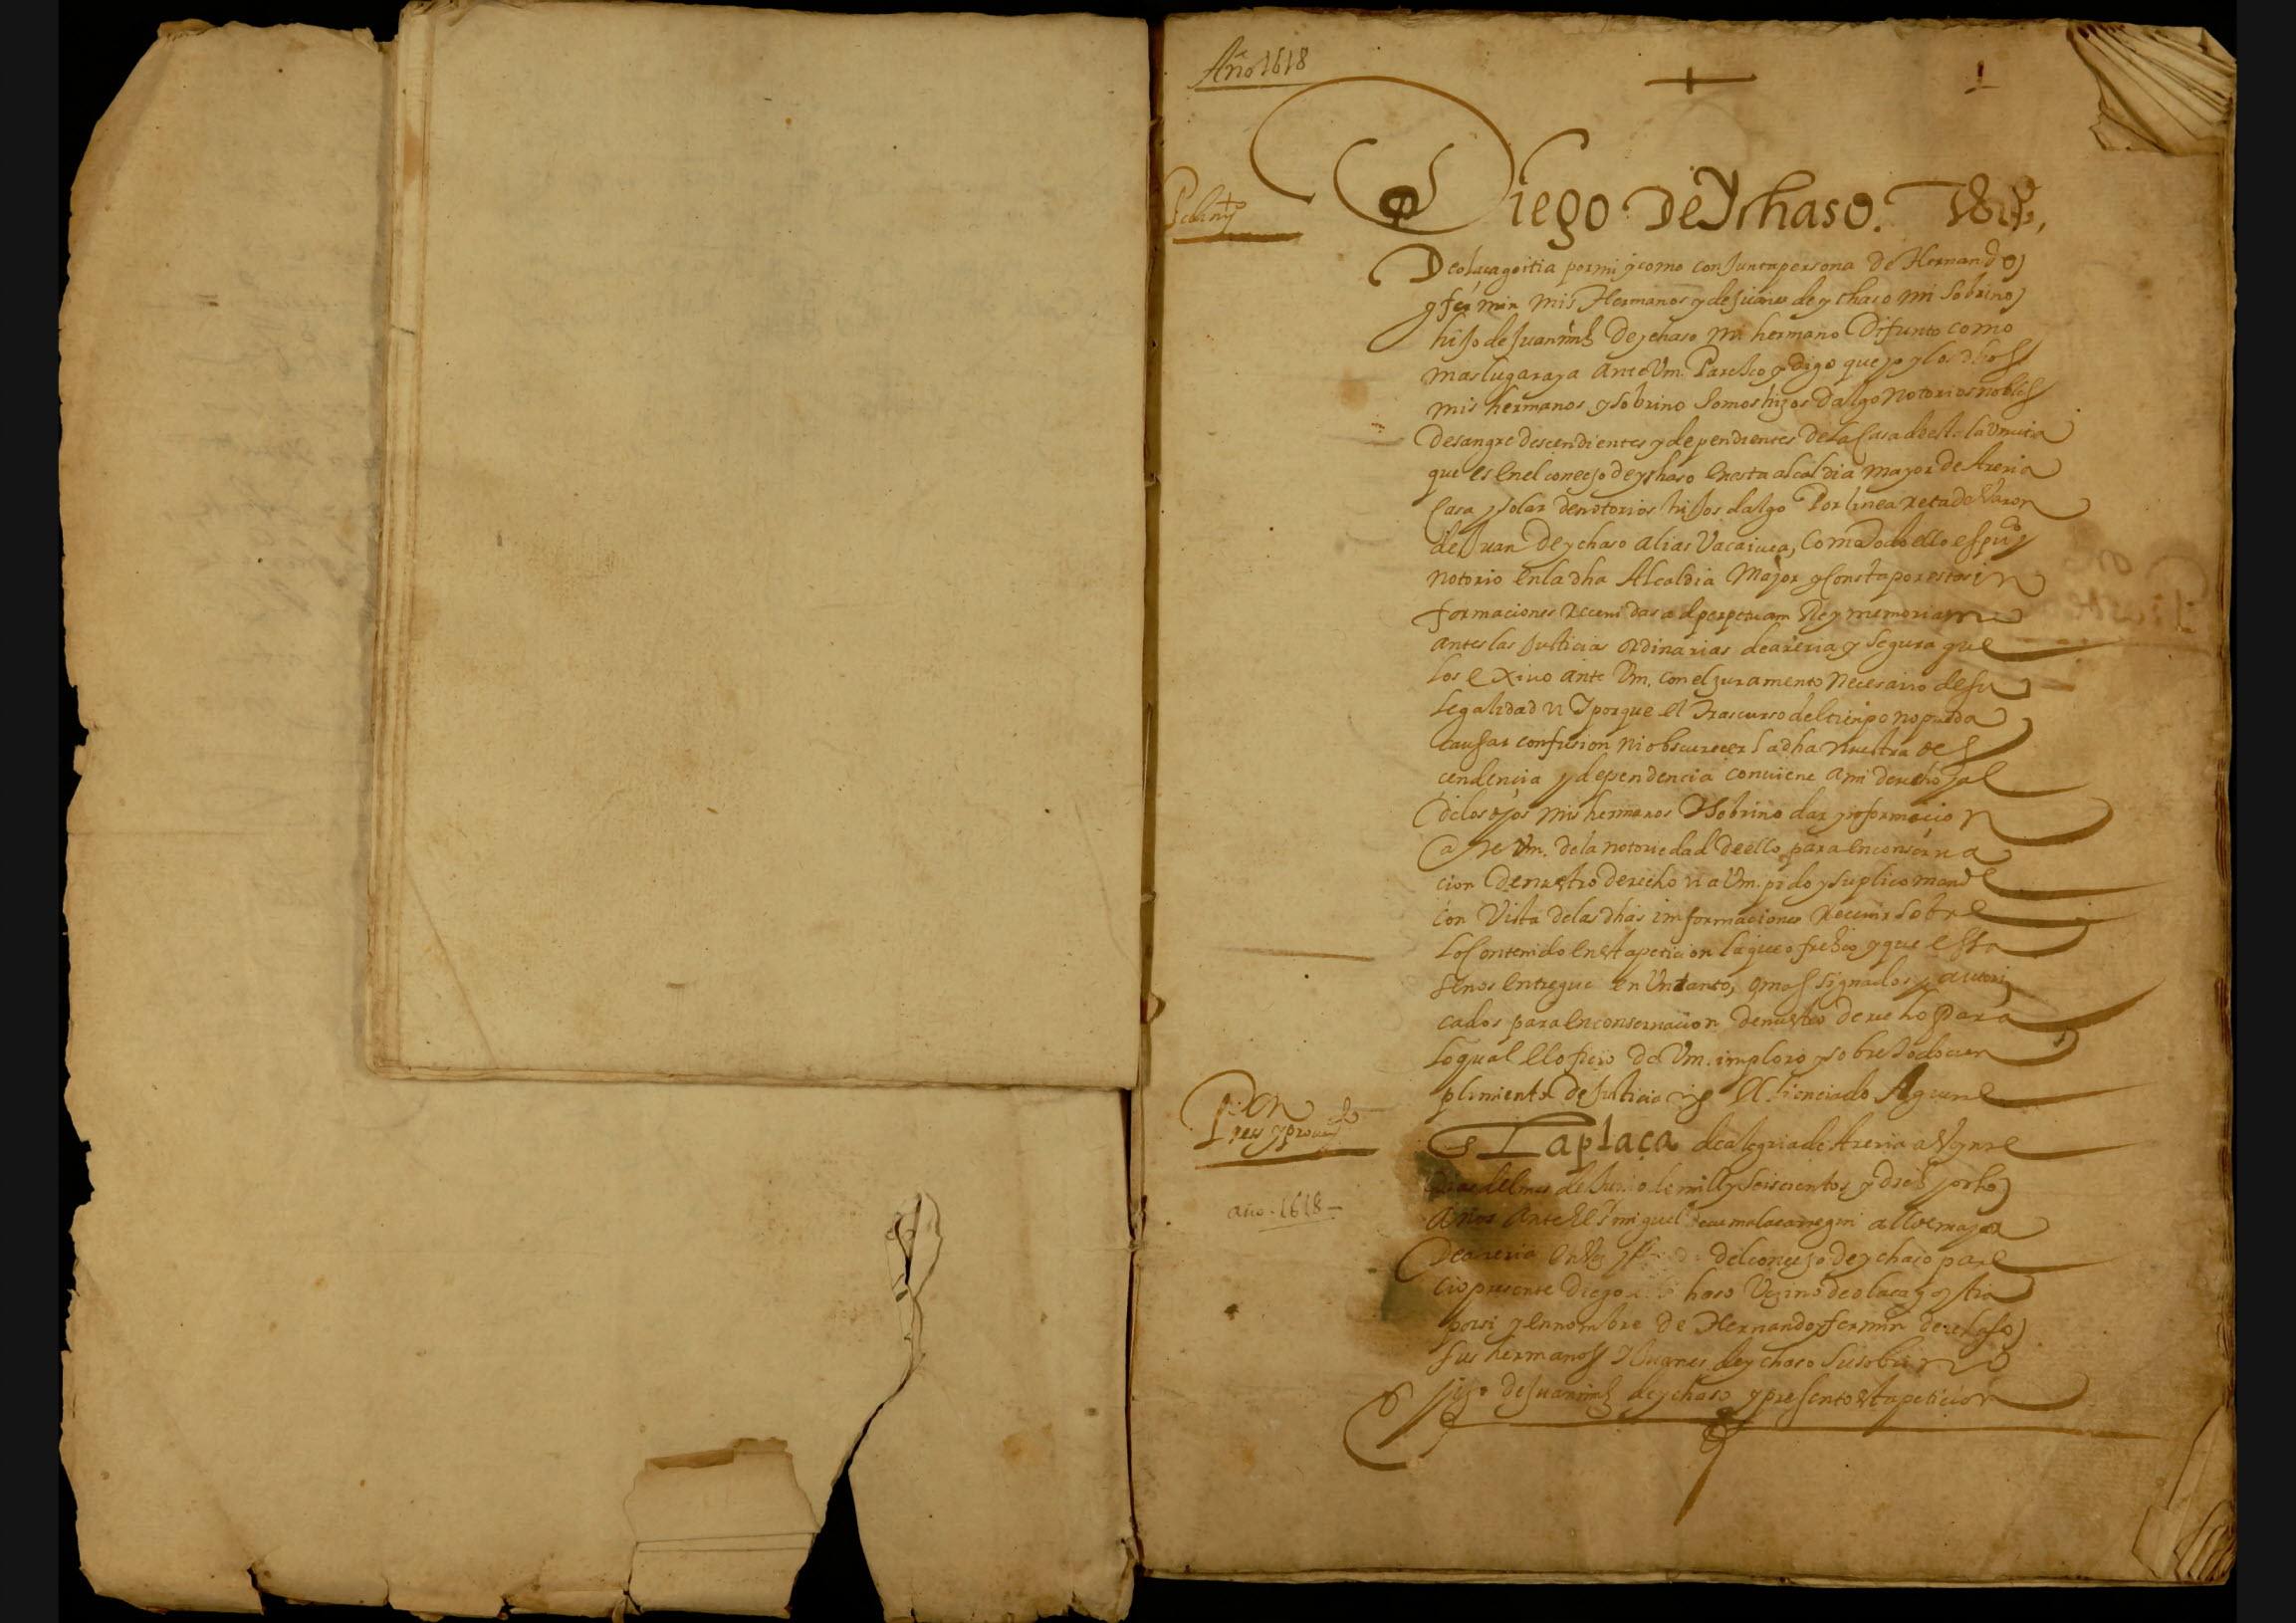 Año 1618
Diego De Ychaso. Vzº,
De olaçagoitia por mi y como conJunta persona de Hernando
y fermin mis Hermanos y de Juanes de ychaso mi sobrino
hiJo de Juan mñz De ychaso mi hermano Difunto como
mas lugar aya ante Vm. Paresco y Digo que yo y los dhos
mis hermanos y sobrino somos hijos dalgo notorios nobles
De sangre descendientes y dependientes De la Casa de
que es en el concejo de ychaso en esta alcaldia mayor de Areria
Casa y solar de notorios hiJos dalgo Por linea reta de Varon
de Juan De ychaso alias Vacaiuca, Como todo ello es puco
notorio en la dha Alcaldia Mayor y Consta por estas in
formaciones receuidas ad perpetuam Rey memoriam
antes las Justicias ordinarias de areria y segura que
los exiuo ante Vm. con el juramento necesario de su
legalidad Y porque el trascurso del tiempo no pueda
causar confusion ni obscurecer la dha nuestra des
cendencia y dependencia conuiene a mi derecho y al
de los dhos mis hermanos y sobrino dar ynformacion
ante Vm. de la notoriedad de ello para en conserua
cion De nuestro derecho a Vm. pido y suplico mande
con Vista de las dhas informaciones Receuir sobre
lo Contenido en esta peticion la que ofresco y que esta
se nos entregue en Un tanto, o mas signados y autori
cados para en conseruacion de nuestro derecho Para
lo qual el oficio de Vm. imploro y sobre todo cun
plimiento de Justicia El licenciado Aguirre
En La plaça de alegria de Areria a Veynte
dias del mes de Junio de mill y seiscientos y diez y ocho
años ante El Sr miguel alcalde mayor
De areria del concejo de ychaso pare
cio presente Diego de ychaso Vezino de olaçagoitia
por si y en nombre de Hernando y fermin de ychaso
sus hermanos y Juanes de ychaso su sobrino
hijo de Juan mñz de ychaso y presento esta peticion
Pon
Pres y proueydo
año. 1618